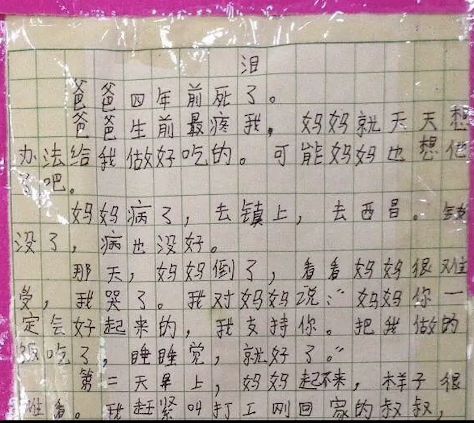 泪
爸爸四年前死了。
爸爸生前最疼我，妈妈就天天想
办法给我做好吃的。可能妈妈也想他
了吧。
妈妈病了，去镇上，去西昌。钱
没了，病也没好。
那天，妈妈倒了，看看妈妈很难
受，我哭了。我对妈妈说：“妈妈你一
定会好起来的，我支持你。把我做的
饭吃了，睡睡觉，就好了。”
第二天早上，妈妈起不来，样子很
难看。我赶紧叫打工刚回家的叔叔，